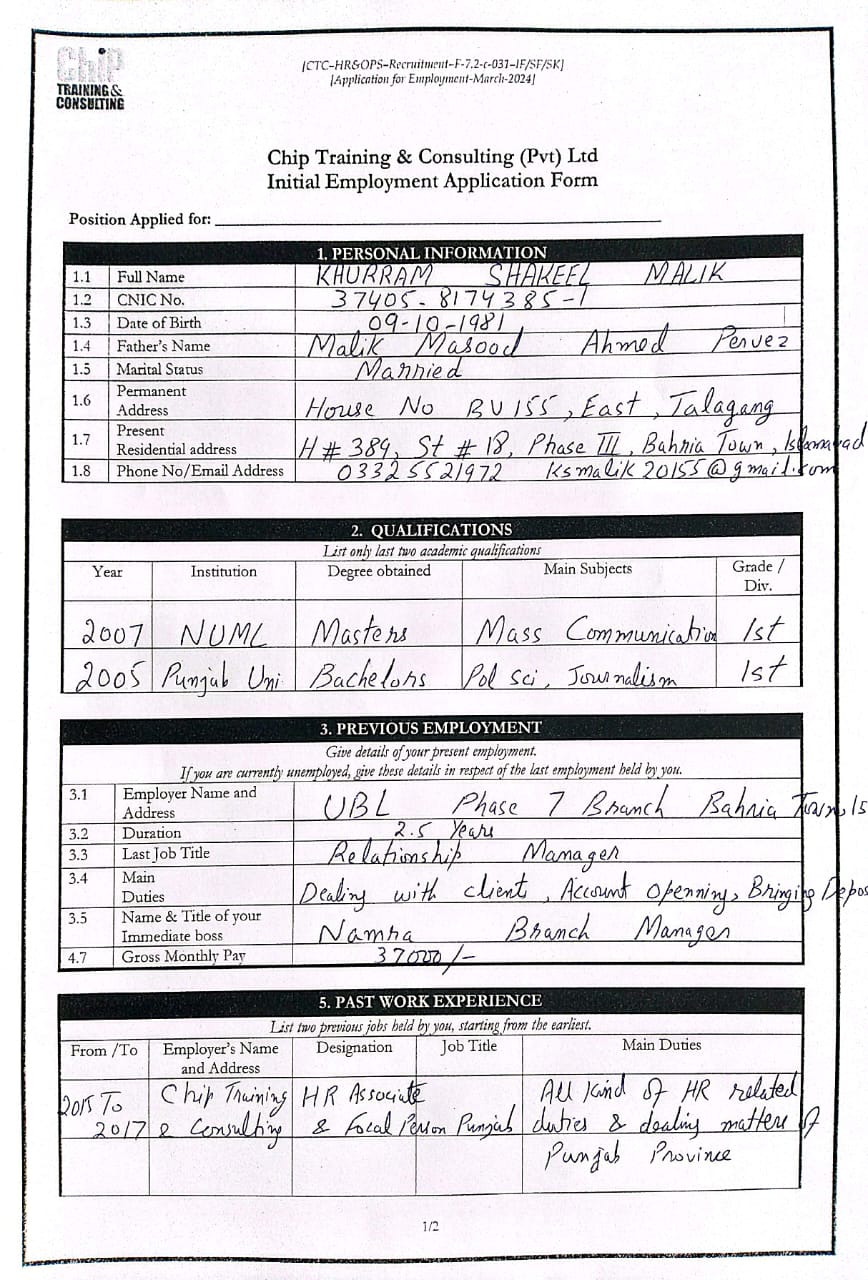 ChiP
TRAINING &
CONSULTING
[CTC-HR&OPS-Recruitment-F-7.2-c-031-IF/SF/SK]
[Application for Employment-March-2024]
Chip Training & Consulting (Pvt) Ltd
Initial Employment Application Form
Position Applied for:
1. PERSONAL INFORMATION
1.1 Full Name KHURRAM SHAKEEL MALIK
1.2 CNIC No. 37405-8174385-1
1.3 Date of Birth 09-10-1981
1.4 Father's Name Malik Masood Ahmed Pervez
1.5 Marital Status Married
1.6 Permanent Address House No BV 155, East, Talagang
1.7 Present Residential address H # 389, St # 18, Phase III, Bahria Town, Islamabad
1.8 Phone No/Email Address 03325521972 ksmalik20155@gmail.com
2. QUALIFICATIONS
List only last two academic qualifications
Year Institution Degree obtained Main Subjects Grade / Div.
2007 NUML Masters Mass Communication 1st
2005 Punjab Uni Bachelors Pol Sci, Journalism 1st
3. PREVIOUS EMPLOYMENT
Give details of your present employment.
If you are currently unemployed, give these details in respect of the last employment held by you.
3.1 Employer Name and Address UBL Phase 7 Branch Bahria Town, IS
3.2 Duration 2.5 Years
3.3 Last Job Title Relationship Manager
3.4 Main Duties Dealing with clients, Account Openning, Bringing Depos
3.5 Name & Title of your Immediate boss Namra Branch Manager
4.7 Gross Monthly Pay 37000/-
5. PAST WORK EXPERIENCE
List two previous jobs held by you, starting from the earliest.
From /To Employer's Name and Address Designation Job Title Main Duties
2015 To Chip Training HR Associate All kind of HR related
2017 & Consulting & Focal Person Punjab duties & dealing matters of
Punjab Province
1/2